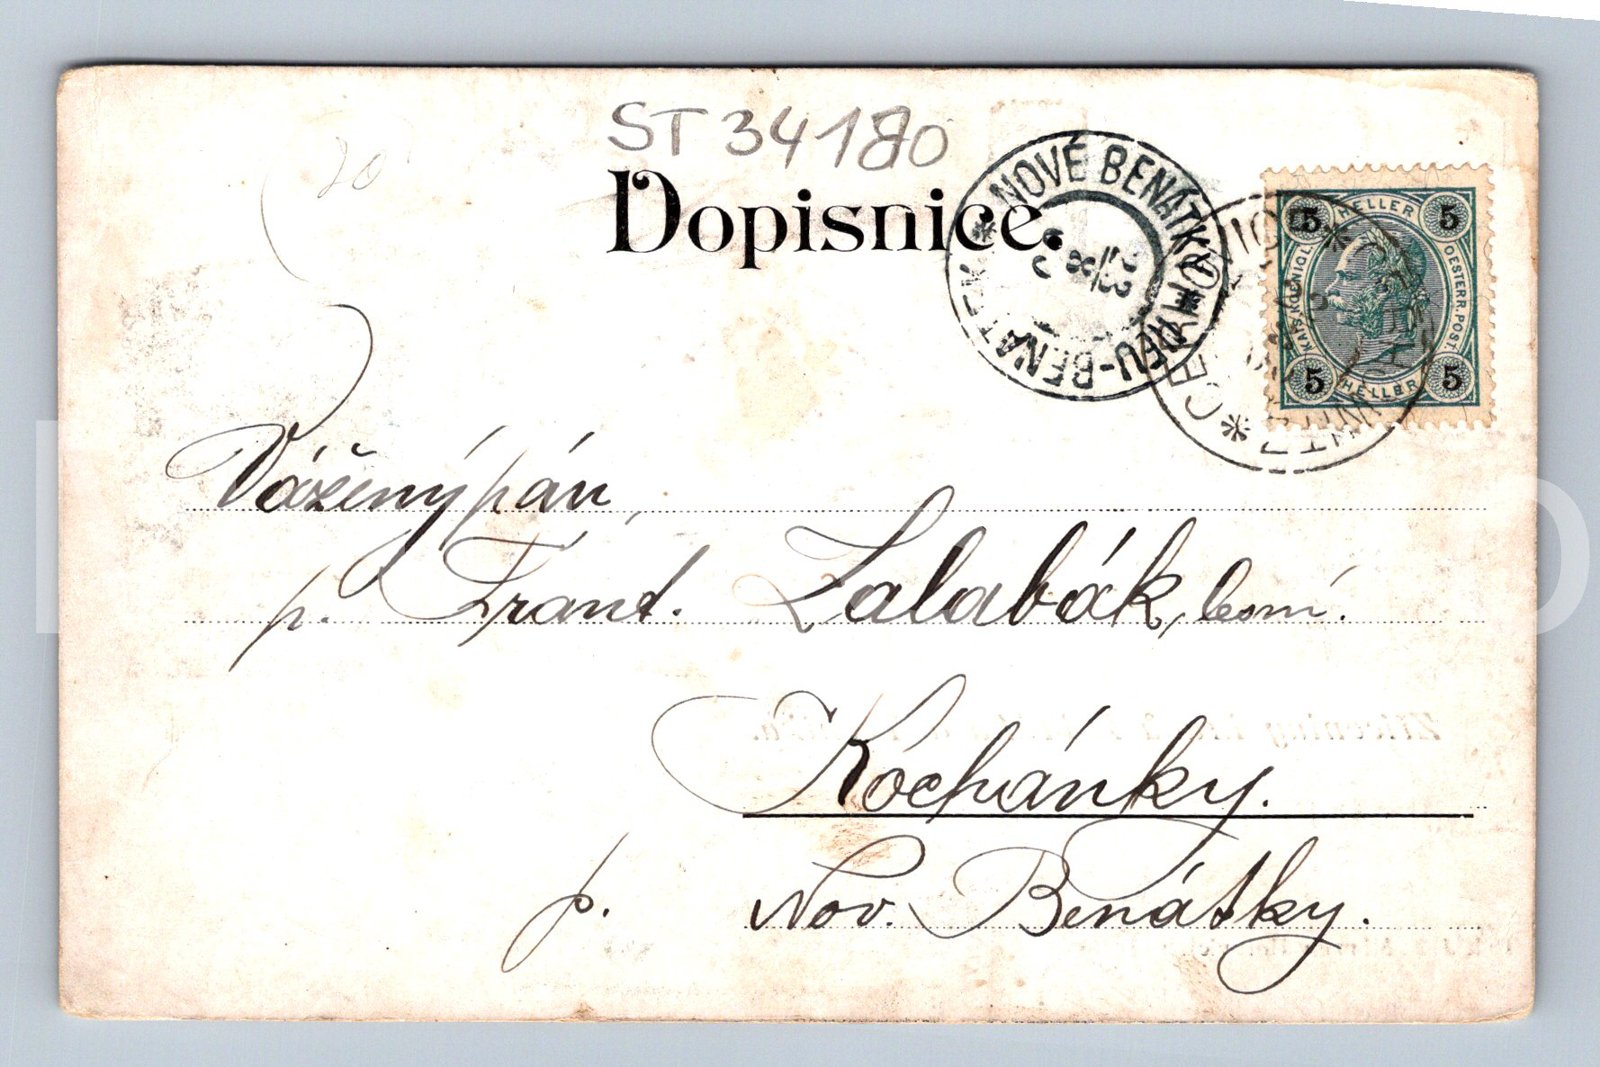 20
ST 34180
Dopisnice.
NOVÉ BENÁTKY
NEU-BENATEK
5 HELLER 5
KAIS. KOENIGL. OESTERR. POST.
5 HELLER 5
Vážený pán,
p. Frant. Zalabák, lesní.
Kochánky.
p. Nov. Benátky.